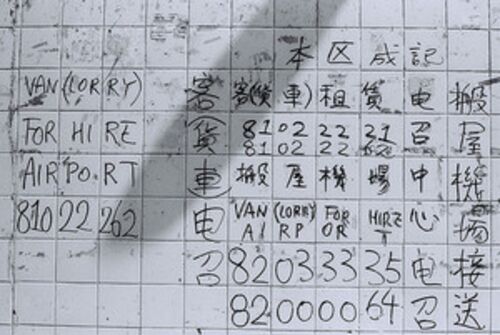 本区成記
VAN (LORRY)
FOR HIRE
AIRPORT
810 22 262
客(貨車)电召
客(貨車)租賃
8102 22 31
8102 22 62
搬屋機場
VAN (LORRY) FOR HIRE
AIRPORT
82 03 33 35
82 00 00 64
电召中心电召
搬屋機場接送